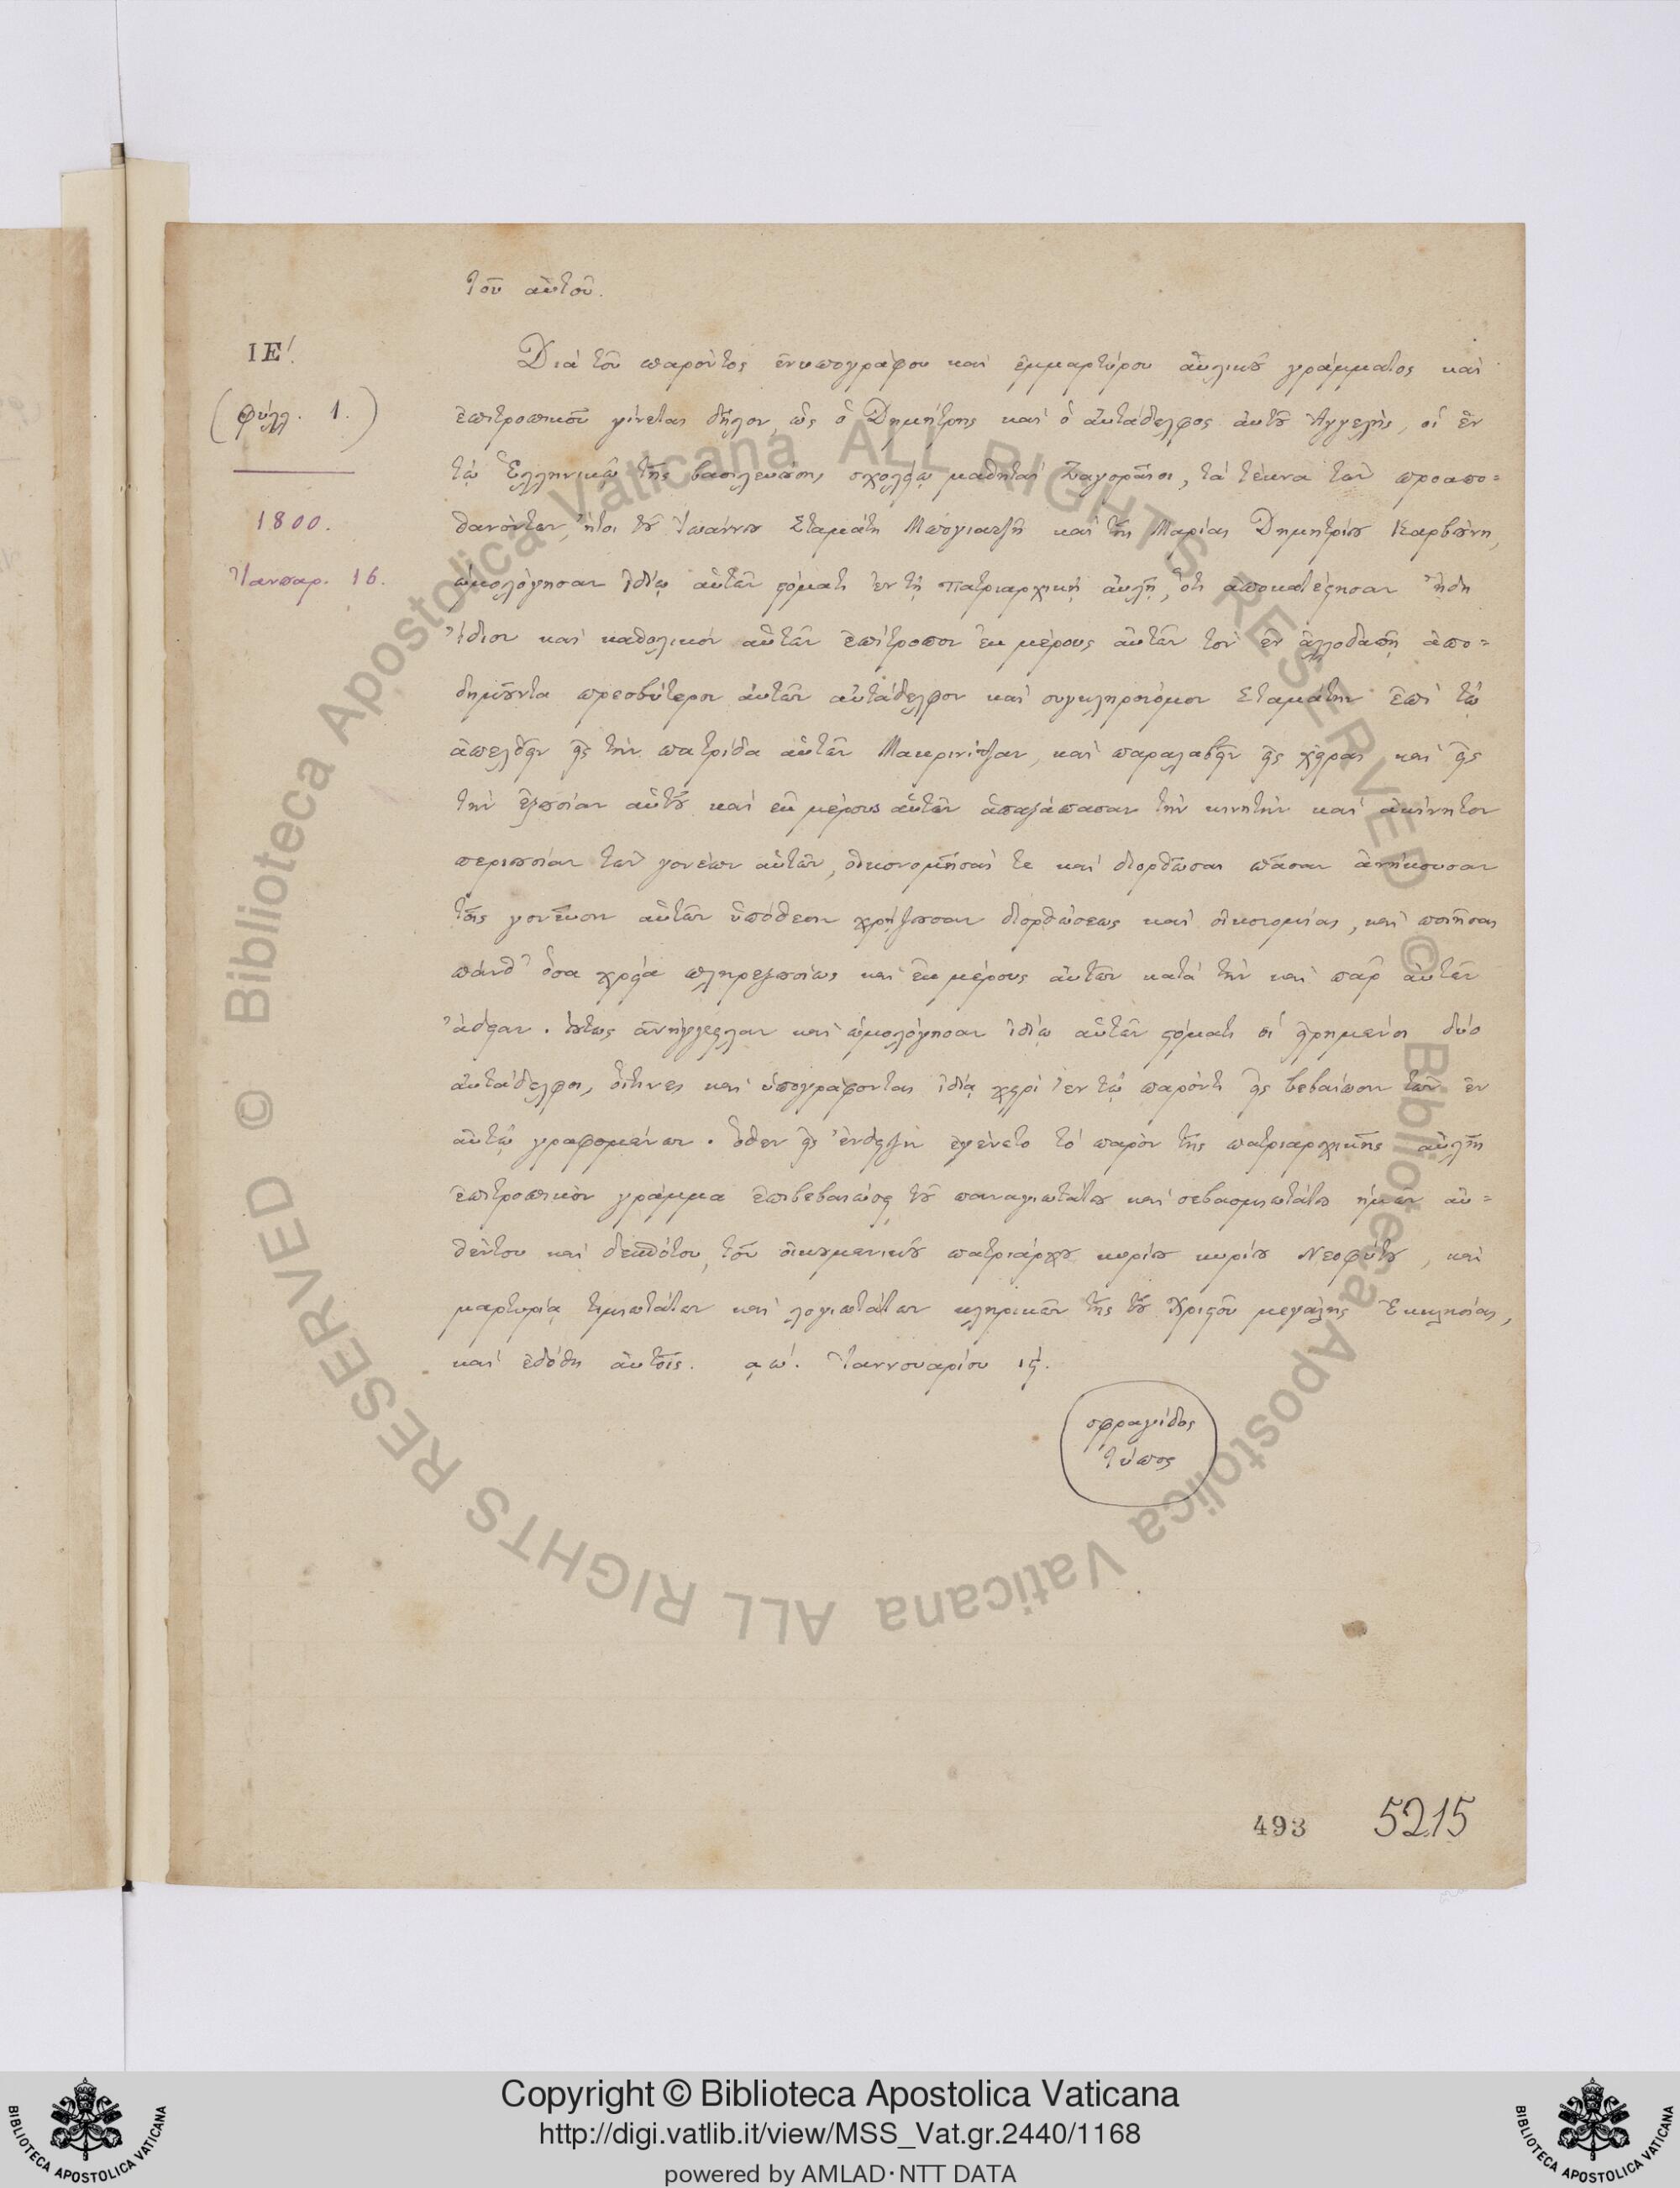 τοῦ αὐτοῦ.
ΙΕ΄.
(φύλλ. 1.)
1800.
Ἰανουαρ. 16.
Διὰ τοῦ παρόντος ἐνυπογράφου καὶ ἐμμαρτύρου αὐλικοῦ γράμματος καὶ
ἐπιτροπικοῦ γίνεται δῆλον, ὡς ὁ Δημήτρης καὶ ὁ αὐτάδελφος αὐτοῦ Ἀγγελής, οἱ ἐν
τῷ Ἑλληνικῷ τῆς βασιλευούσης σχολείῳ μαθηταὶ Ζαγοραῖοι, τὰ τέκνα τῶν προαπο=
θανόντων, ἤτοι τοῦ Ἰωάννου Σταμάτη Μπογιατζῆ καὶ τῆς Μαρίας Δημητρίου Καρβούνη,
ὡμολόγησαν ἰδίῳ αὐτῶν στόματι ἐν τῇ πατριαρχικῇ αὐλῇ, ὅτι ἀποκατέστησαν ἤδη
ἴδιον καὶ καθολικόν αὐτῶν ἐπίτροπον ἐκ μέρους αὐτῶν τὸν ἐν ἀλλοδαπῇ ἀπο=
δημοῦντα πρεσβύτερον αὐτῶν αὐτάδελφον καὶ συγκληρονόμον Σταμάτην ἐπὶ τῷ
ἀπελθεῖν εἰς τὴν πατρίδα αὐτῶν Μακρινίτζαν, καὶ παραλαβεῖν εἰς χεῖρας καὶ εἰς
τὴν ἐξουσίαν αὐτοῦ καὶ ἐκ μέρους αὐτῶν ἁπαξάπασαν τὴν κινητὴν καὶ ἀκίνητον
περιουσίαν τῶν γονέων αὐτῶν, οἰκονομῆσαί τε καὶ διορθῶσαι πᾶσαν ἀνήκουσαν
τοῖς γονεῦσιν αὐτῶν ὑπόθεσιν χρῄζουσαν διορθώσεως καὶ οἰκονομίας, καὶ ποιῆσαι
πάνθ' ὅσα χρεία πληρεξουσίως καὶ ἐκ μέρους αὐτῶν κατὰ τὴν καὶ παρ' αὐτῶν
ἄδειαν. οὕτως ἀνήγγειλαν καὶ ὡμολόγησαν ἰδίῳ αὐτῶν στόματι οἱ εἰρημένοι δύο
αὐτάδελφοι, οἵτινες καὶ ὑπογράφονται ἰδίᾳ χειρὶ ἐν τῷ παρόντι εἰς βεβαίωσιν τῶν ἐν
αὐτῷ γραφομένων. ὅθεν εἰς ἔνδειξιν ἐγένετο τὸ παρὸν τῆς πατριαρχικῆς αὐλῆς
ἐπιτροπικὸν γράμμα ἐπιβεβαιώσει τοῦ παναγιωτάτου καὶ σεβασμιωτάτου ἡμῶν αὐ=
θέντου καὶ δεσπότου, τοῦ οἰκουμενικοῦ πατριάρχου κυρίου κυρίου Νεοφύτου, καὶ
μαρτυρίᾳ τιμιωτάτων καὶ λογιωτάτων κληρικῶν τῆς τοῦ Χριστοῦ μεγάλης Ἐκκλησίας,
καὶ ἐδόθη αὐτοῖς. ͵αω΄. Ἰαννουαρίου ιϛ΄.
σφραγίδος
τύπος
493 5215
Copyright © Biblioteca Apostolica Vaticana
http://digi.vatlib.it/view/MSS_Vat.gr.2440/1168
powered by AMLAD·NTT DATA
BIBLIOTECA APOSTOLICA VATICANA
BIBLIOTECA APOSTOLICA VATICANA
© Biblioteca Apostolica Vaticana ALL RIGHTS RESERVED
© Biblioteca Apostolica Vaticana ALL RIGHTS RESERVED